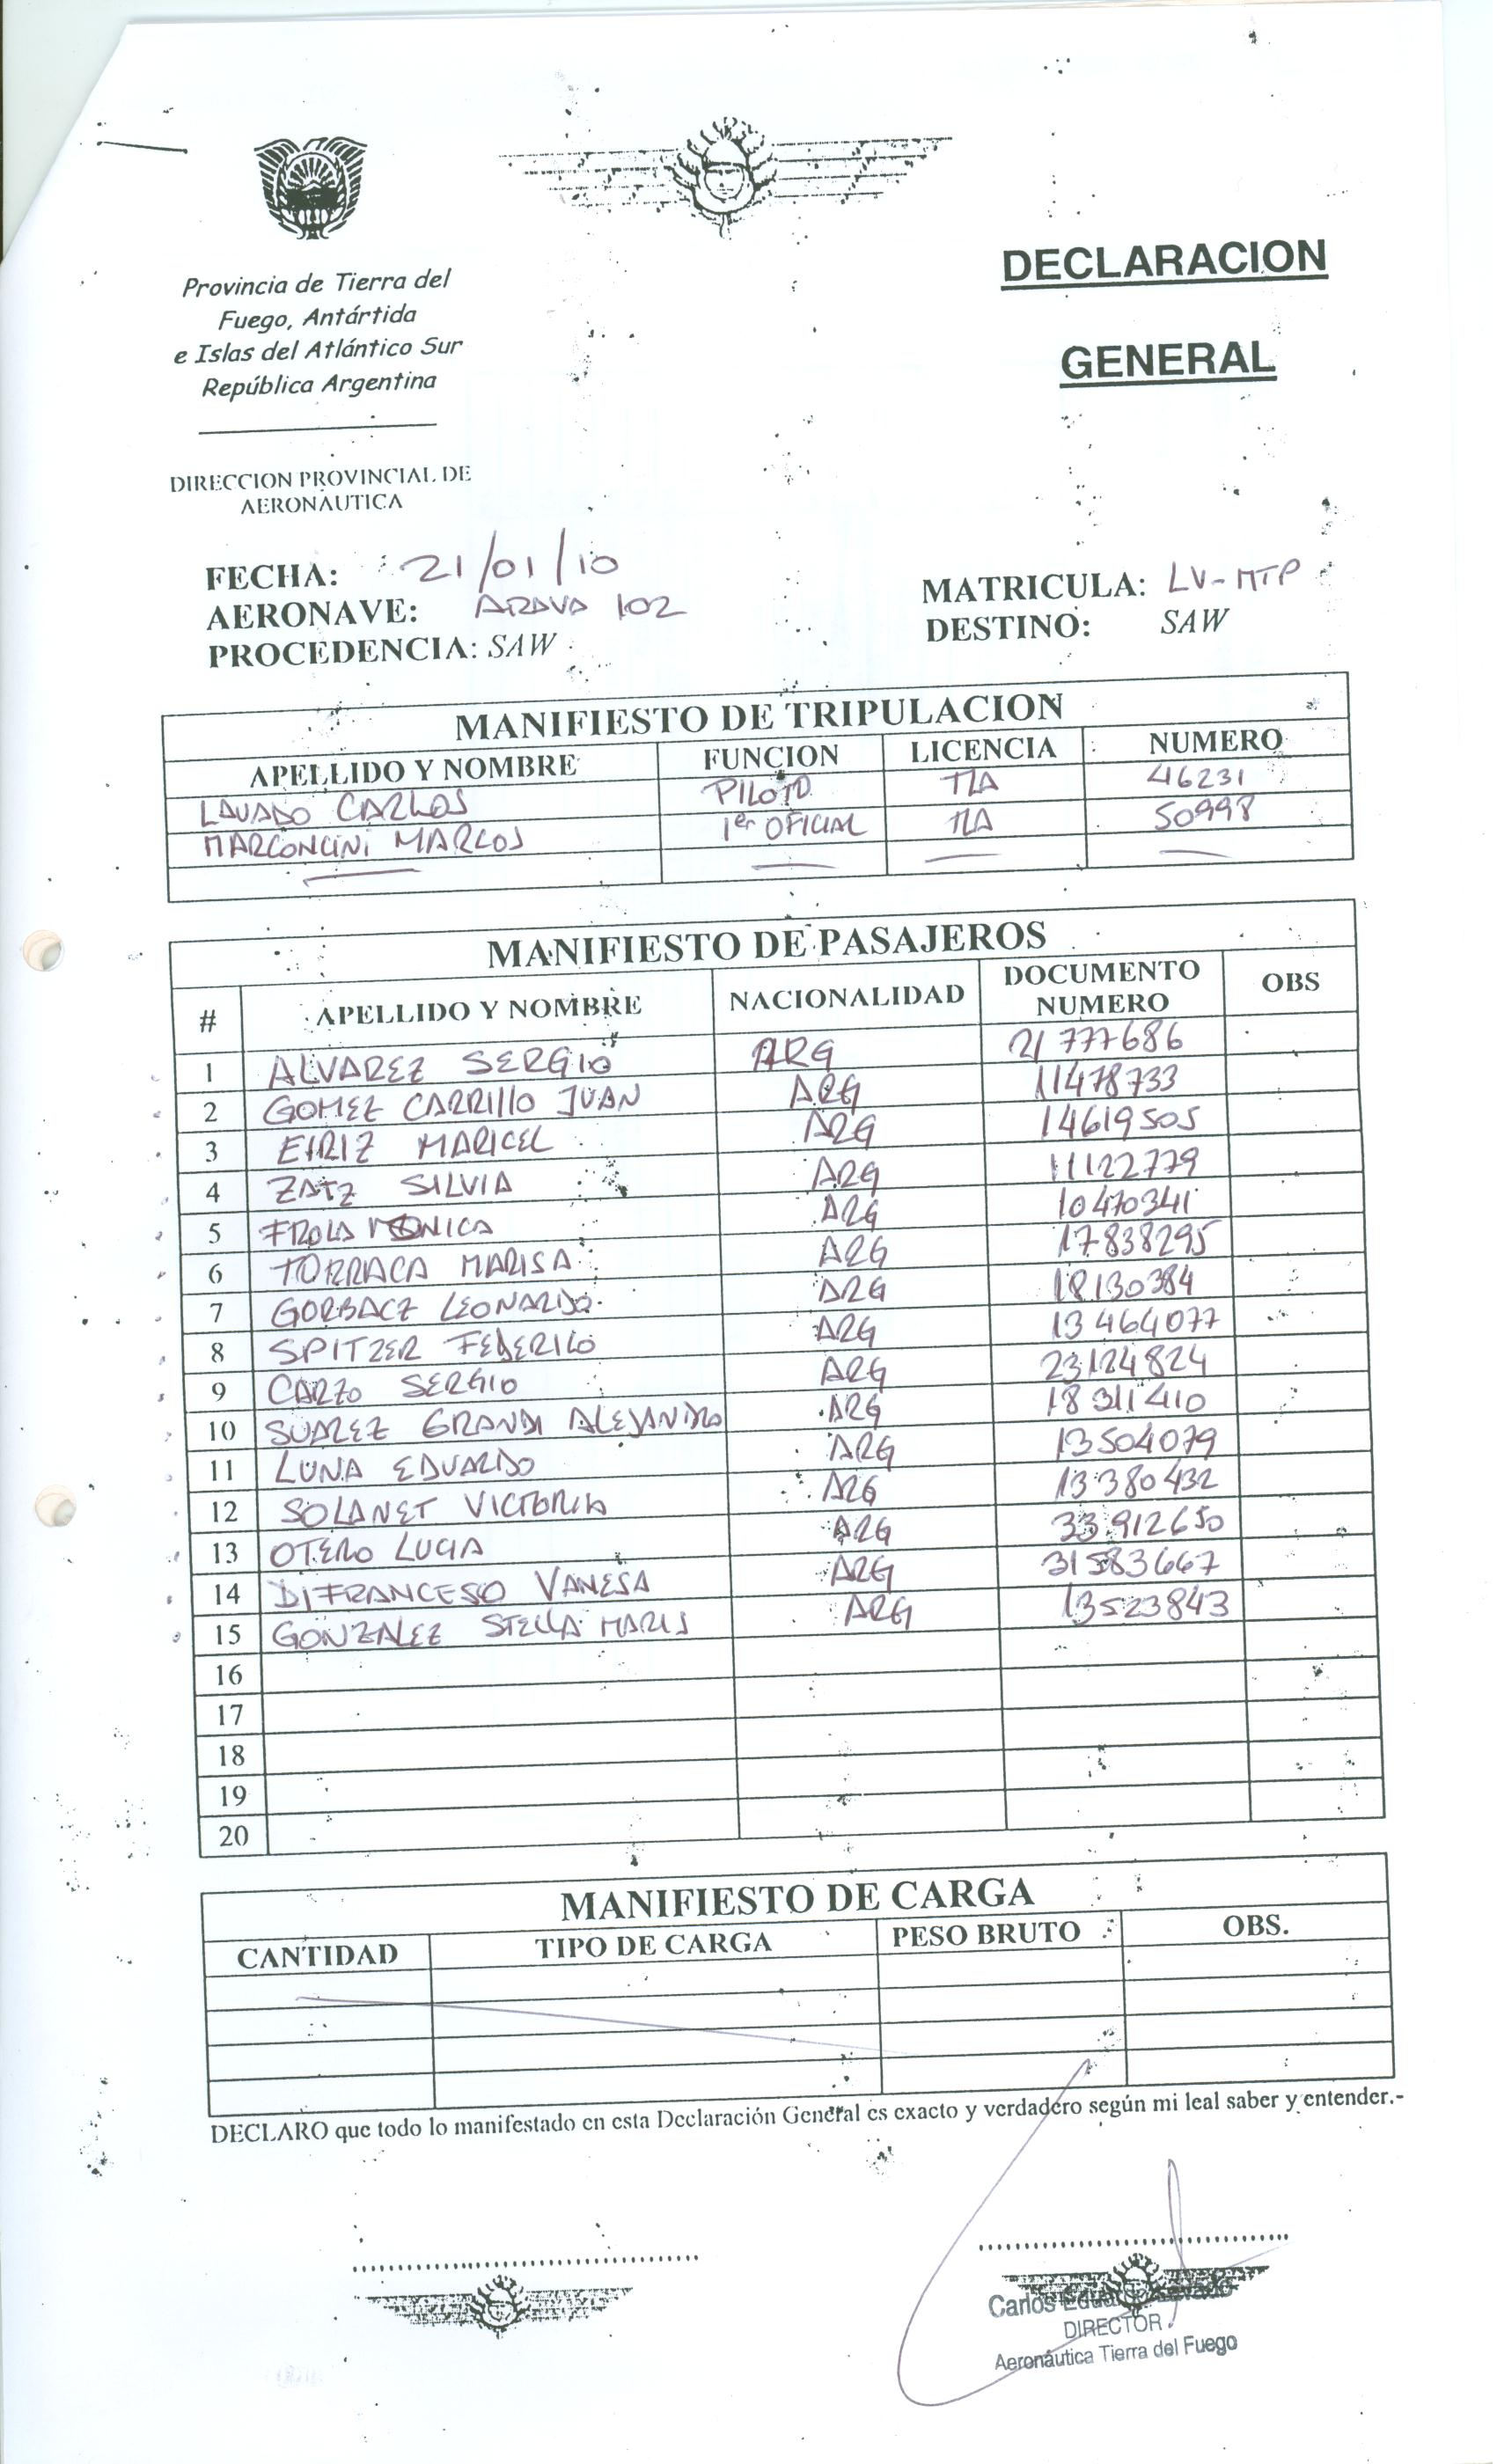 DECLARACION
GENERAL
Provincia de Tierra del
Fuego, Antártida
e Islas del Atlántico Sur
República Argentina
DIRECCION PROVINCIAL DE
AERONÁUTICA
FECHA: 21/01/10
AERONAVE: ARAVA 102
PROCEDENCIA: SAW
MATRICULA: LV-MTP
DESTINO: SAW
MANIFIESTO DE TRIPULACION
APELLIDO Y NOMBRE FUNCION LICENCIA NUMERO
LAVADO CARLOS PILOTO TLA 46231
MARCONCINI MARCOS 1er OFICIAL TLA 50998
MANIFIESTO DE PASAJEROS
# APELLIDO Y NOMBRE NACIONALIDAD DOCUMENTO NUMERO OBS
1 ALVAREZ SERGIO ARG 21777686
2 GOMEZ CARRILLO JUAN ARG 11478733
3 EIRIZ MARICEL ARG 14619505
4 ZATZ SILVIA ARG 11122779
5 FROLA MONICA ARG 10470341
6 TORRACA MARISA ARG 17838295
7 GORBACZ LEONARDO ARG 18130384
8 SPITZER FEDERICO ARG 13464077
9 CARZO SERGIO ARG 23124824
10 SUAREZ GRANDI ALEJANDRO ARG 18311410
11 LUNA EDUARDO ARG 13504079
12 SOLANET VICTORIA ARG 13380432
13 OTERO LUCIA ARG 33912650
14 DIFRANCESO VANESA ARG 31583667
15 GONZALEZ STELLA MARIS ARG 13523843
16
17
18
19
20
MANIFIESTO DE CARGA
CANTIDAD TIPO DE CARGA PESO BRUTO OBS.
DECLARO que todo lo manifestado en esta Declaración General es exacto y verdadero según mi leal saber y entender.-
Carlos Eduardo Lavado
DIRECTOR
Aeronáutica Tierra del Fuego